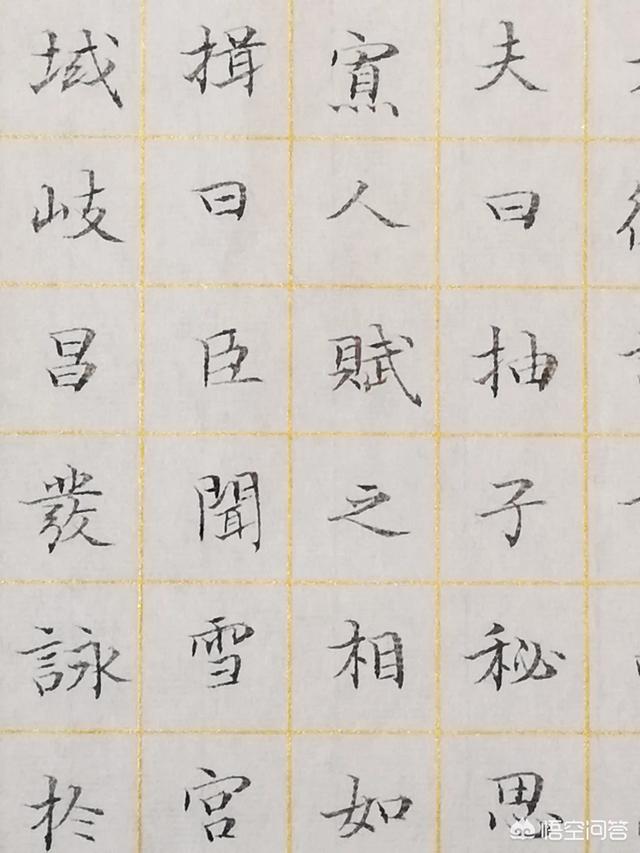 夫曰抽子秘思
寡人賦之相如
揖曰臣聞雪宮
域岐昌發詠於
悟空问答